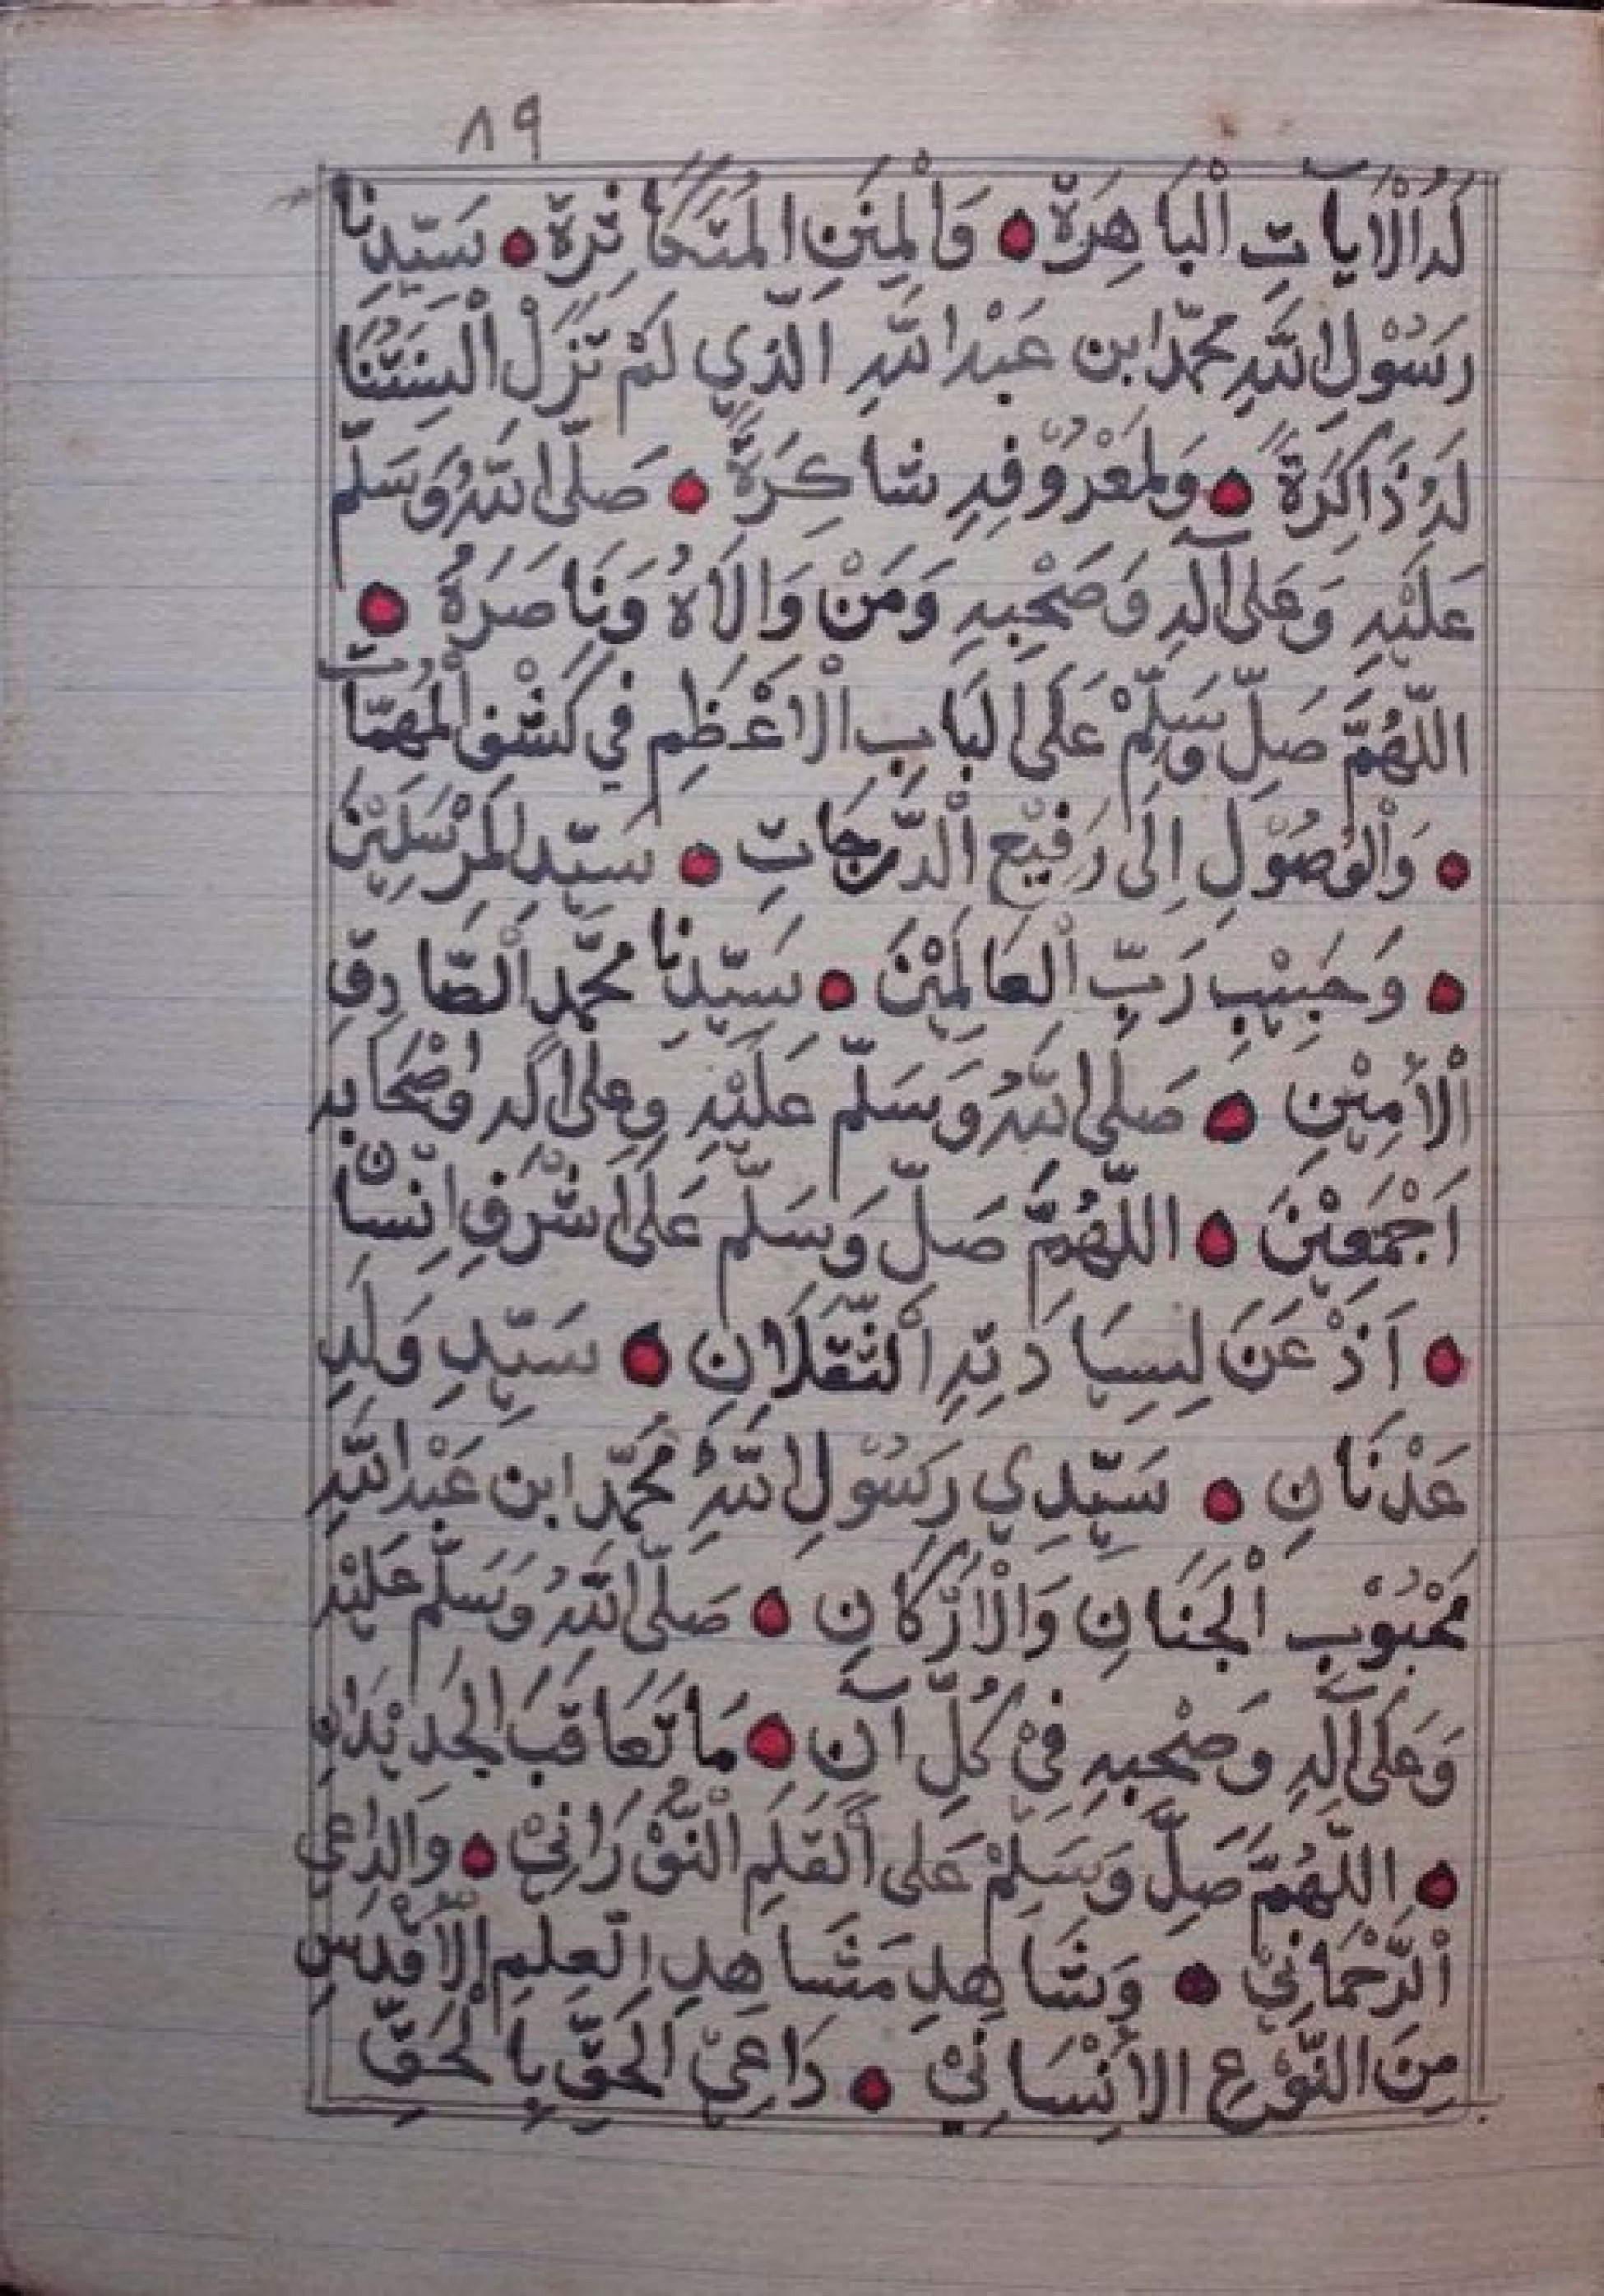 ٨٩
لَهُ الْآيَاتِ الْبَاهِرَةْ ۝ وَالْمِنَنِ الْمُتَكَاثِرَةْ ۝ سَيِّدِنَا
رَسُوْلِ اللّٰهِ مُحَمَّدْ ابن عَبْدِ اللّٰهِ الَّذِي لَمْ تَزَلْ أَلْسِنَتُنَا
لَهُ ذَاكِرَةً ۝ وَلِمَعْرُوْفِهِ شَاكِرَةً ۝ صَلَّى اللّٰهُ وَسَلَّمَ
عَلَيْهِ وَعَلَى آلِهِ وَصَحْبِهِ وَمَنْ وَالَاهُ وَنَاصَرَهُ ۝
اللّٰهُمَّ صَلِّ وَسَلِّمْ عَلَى الْبَابِ الْاَعْظَمِ فِي كَشْفِ الْمُهِمَّاتِ
۝ وَالْوُصُوْلِ اِلَى رَفِيْعِ الْدَّرَجَاتِ ۝ سَيِّدِ الْمُرْسَلِيْنَ
۝ وَحَبِيْبِ رَبِّ الْعَالَمِيْنَ ۝ سَيِّدِنَا مُحَمَّدٍ الْصَّادِقِ
الْأَمِيْنِ ۝ صَلَى اللّٰهُ وَسَلَّمَ عَلَيْهِ وَعَلَى اٰلِهِ وَاَصْحَابِهِ
اَجْمَعِيْنَ ۝ اللّٰهُمَّ صَلِّ وَسَلِّم عَلَى اَشْرَفِ اِنْسَانٍ
۝ اَذْعَنَ لِسِيَادَتِهِ الْثَّقَلَانِ ۝ سَيِّدِ وَلَدِ
عَدْنَانِ ۝ سَيِّدِي رَسُوْلِ اللّٰهِ مُحَمَّدِ ابن عَبْدِ اللّٰهِ
مَحْبُوْبِ الْجَنَانِ وَالْاَرْكَانِ ۝ صَلَّى اللّٰهُ وَسَلَّمَ عَلَيْهِ
وَعَلَى آلِهِ وَصَحْبِهِ فِيْ كُلِّ آنٍ ۝ مَا تَعَاقَبَ الْجَدِيْدَانِ
۝ اللّٰهُمَّ صَلِّ وَسَلِّمْ عَلَى الْقَلَمِ الْنُّوْرَانِيْ ۝ وَالدَاعِي
الْرَّحْمَانِيْ ۝ وَشَاهِدِ مَشَاهِدِ الْعِلْمِ الْاَقْدَسِ
مِنَ النَّوْعِ الْاِنْسَانِيْ ۝ دَاعِيْ الْحَقِّ بِالْحَقِّ